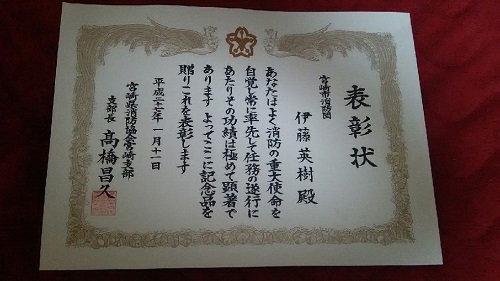 表彰状
宮崎市消防団
伊藤英樹殿
あなたはよく消防の重大使命を
自覚し常に率先して任務の遂行に
あたりその功績は極めて顕著で
あります よってここに記念品を
贈りこれを表彰します
平成二十七年一月十一日
宮崎県消防協会宮崎支部
支部長 髙橋昌久